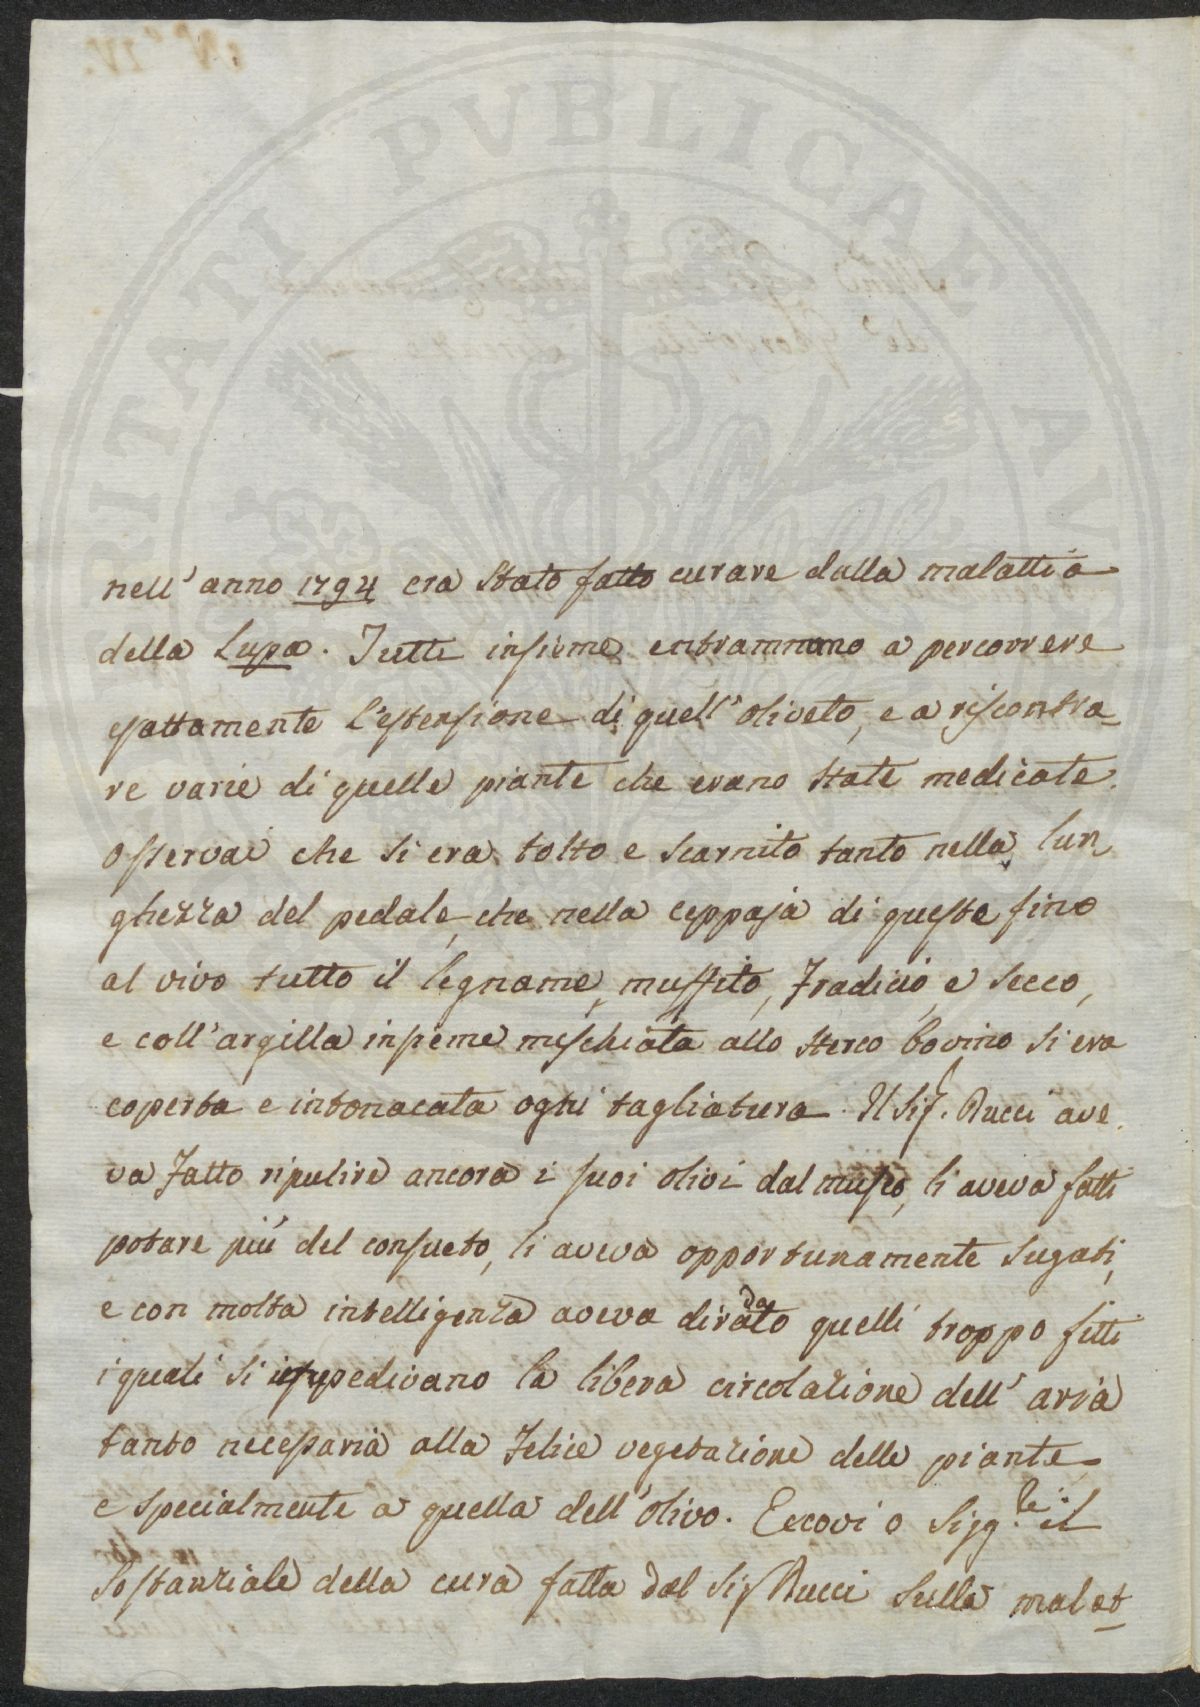 PVBLICAE
nell' anno 1794 era stato fatto curare dalla malattia
della Lupa. Tutti insieme entrammamo a percorrere
esattamente l'estensione di quell' oliveto, e a riscontra_
re varie di quelle piante che erano state medicate.
Osservai che si era tolto e scarnito tanto nella lun
ghezza del pedale, che nella ceppaja di queste fino
al vivo tutto il legname, muffito, fradicio, e secco,
e coll' argilla insieme mischiata allo sterco bovino si era
coperta e intonacata ogni tagliatura. Il Sig.r Rucci ave
va fatto ripulire ancora i suoi olivi dal musco, li aveva fatti
potare più del consueto, li aveva opportunamente sugati,
e con molta intelligenza aveva diradato quelli troppo fitti
i quali si impedivano la libera circolazione dell' aria
tanto necessaria alla felice vegetazione delle piante
e specialmente a quella dell' olivo. Eccovi o Sigg.ri il
sostanziale della cura fatta dal Sig Rucci sulla malat